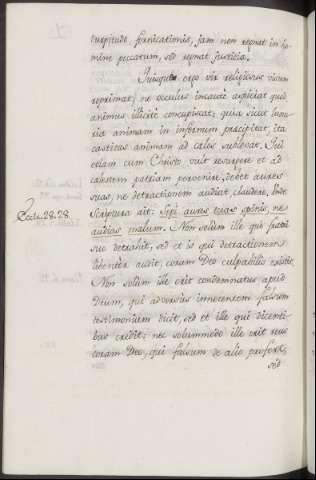 turpitudo fornicationis, jam non regnat in ho-
mine peccatum, sed regnat justitia.
Quisquis ergo vir religiosus visum
reprimat, ne oculus incaute aspiciat quod
animus illicite concupiscat, quia sicut luxu-
ria animam in infernum præcipitat, ita
castitas animam ad cælos sublevat. Qui
etiam cum Christo vult regnare et ad
cælestem patriam pervenire, debet aures
suas, ne detractionem audiat, claudere. Unde
Eccli. 28. 28. Scriptura ait: Sepi aures tuas spinis, ne
audias malum. Non solum ille qui fratri
suo detrahit, sed et is qui detractionem
libenter audit, coram Deo culpabilis existit.
Non solum ille erit condemnatus apud
Deum, qui adversus innocentem falsum
testimonium dicit, sed et ille qui dicenti-
bus credit; nec solummodo ille erit reus
coram Deo, qui falsum de alio profert,
sed